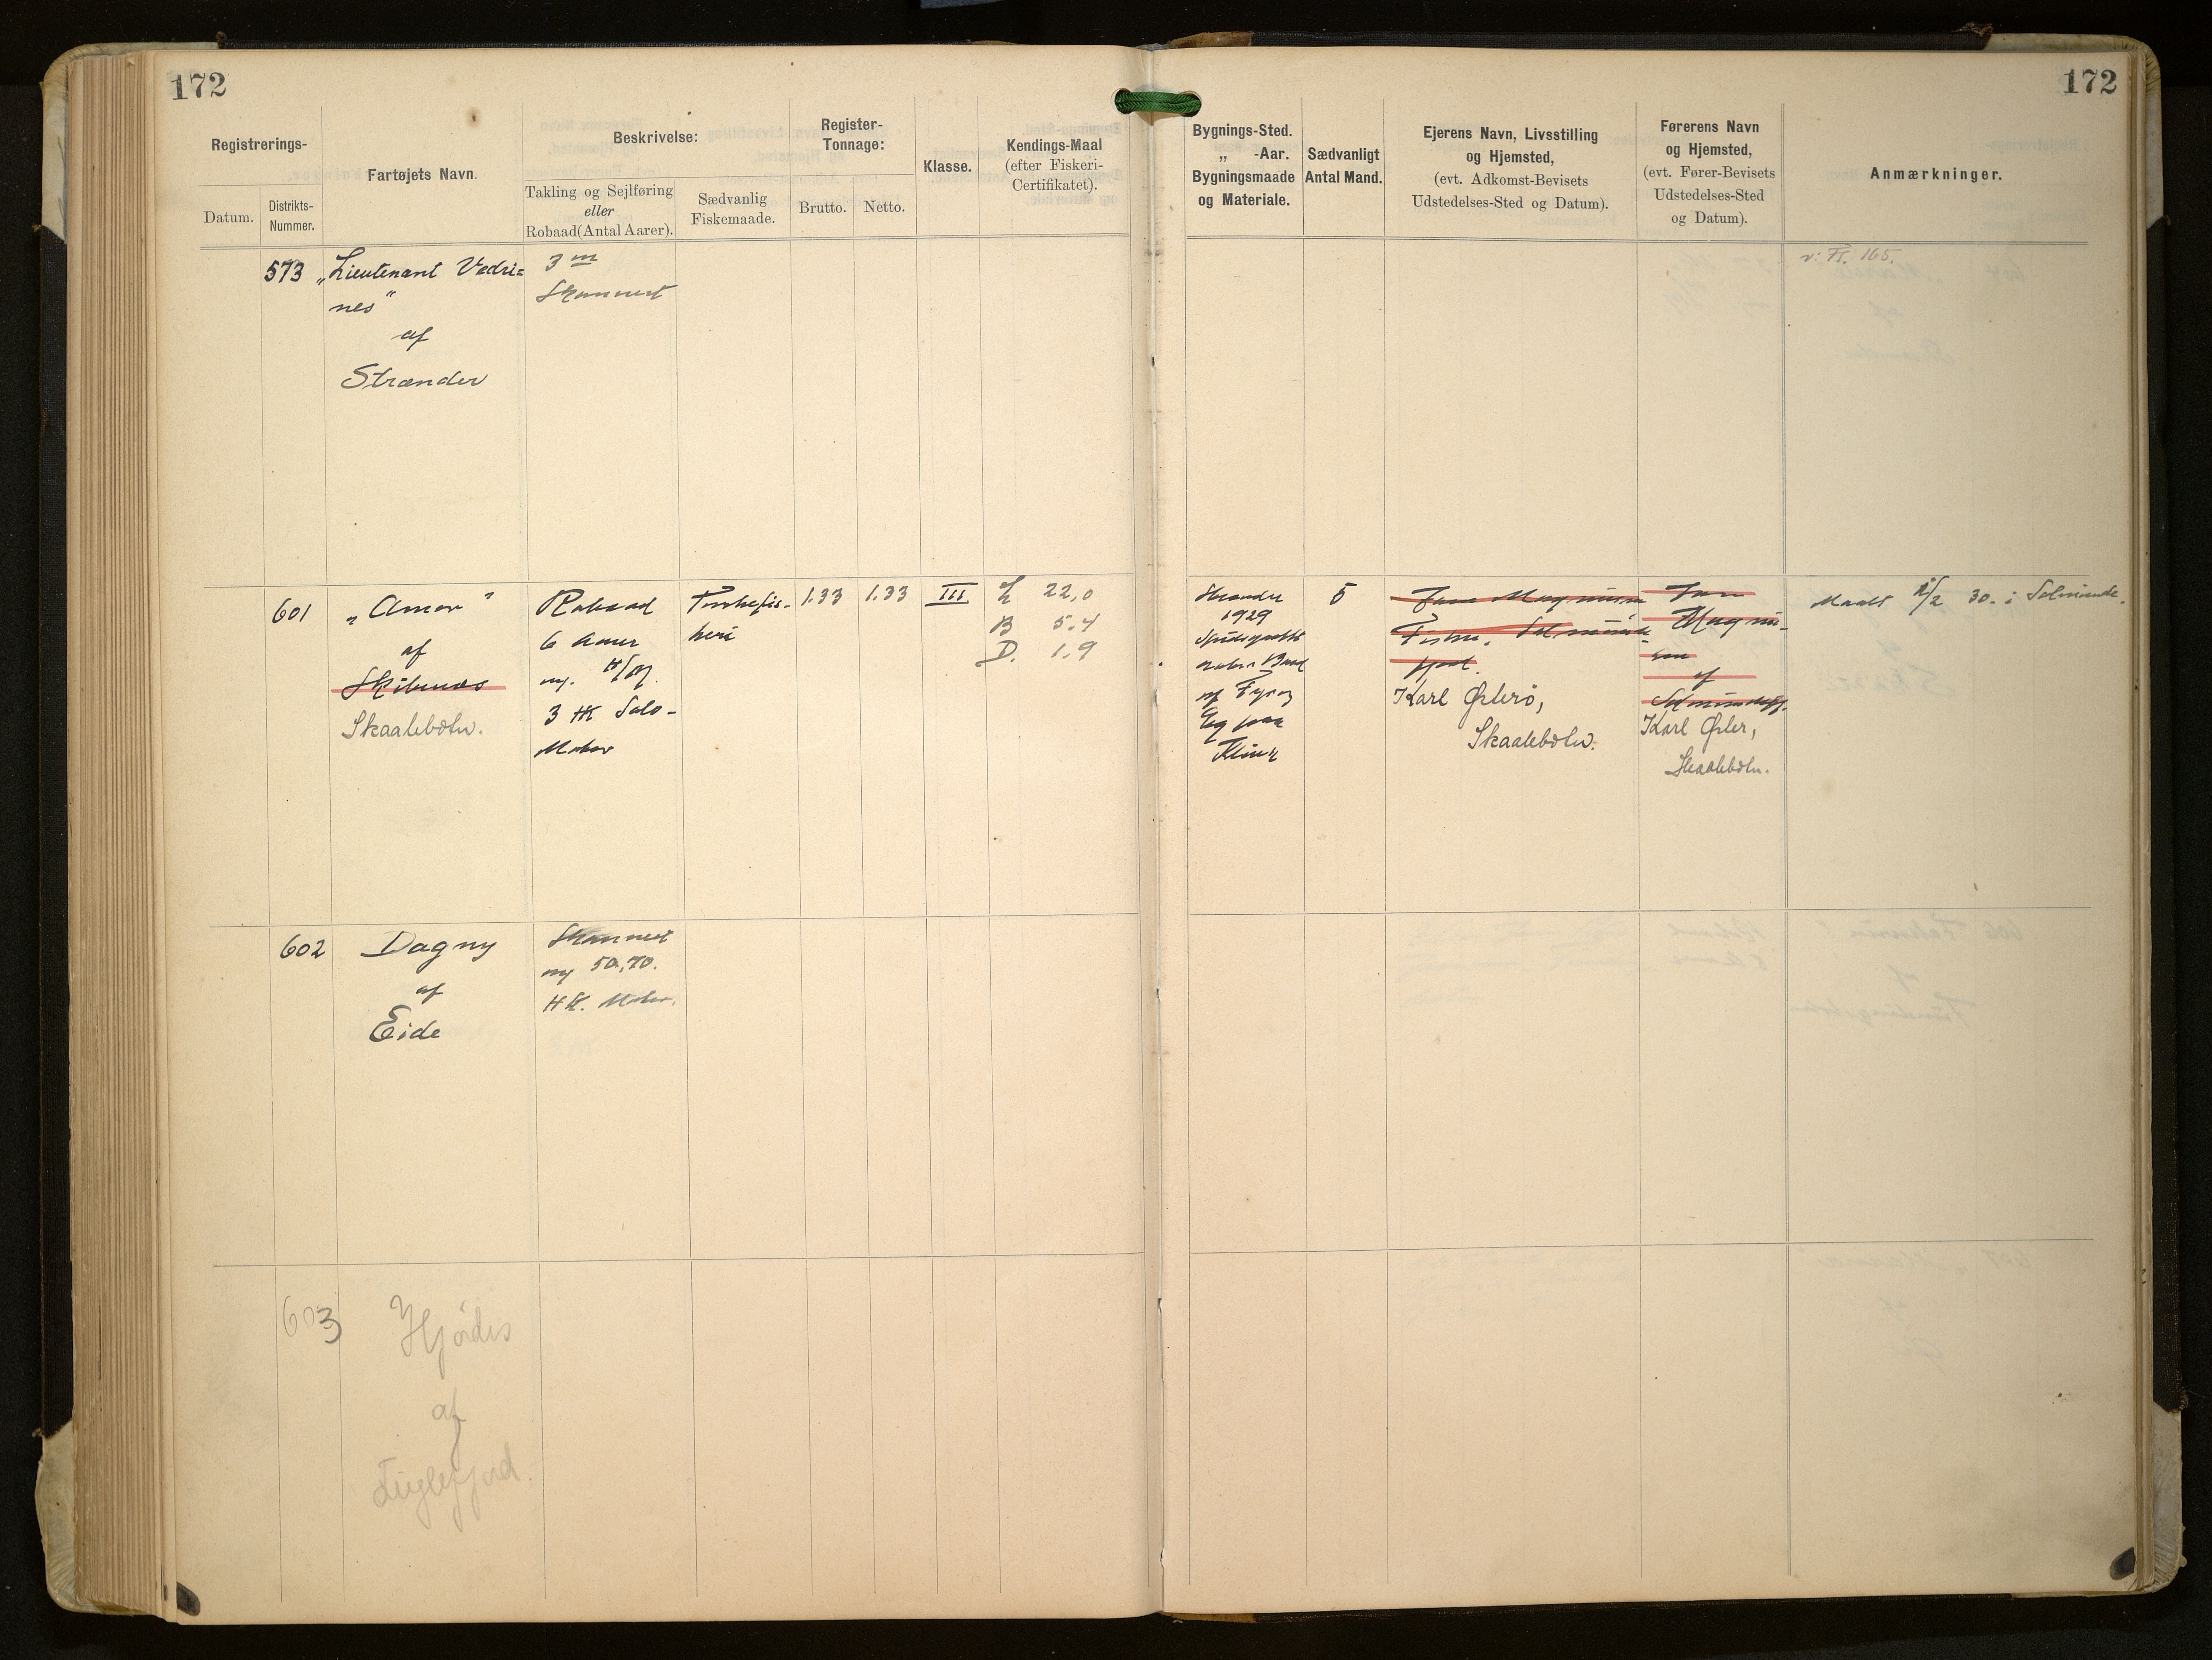 172
172
Registrerings-
Datum.
Distrikts-
Nummer.
Fartøjets Navn.
Beskrivelse:
Takling og Sejlføring
eller
Robaad (Antal Aarer).
Sædvanlig
Fiskemaade.
Register-
Tonnage:
Brutto.
Netto.
Klasse.
Kendings-Maal
(efter Fiskeri-
Certifikatet).
Bygnings-Sted.
„ -Aar.
Bygningsmaade
og Materiale.
Sædvanligt
Antal Mand.
Ejerens Navn, Livsstilling
og Hjemsted,
(evt. Adkomst-Bevisets
Udstedelses-Sted og Datum).
Førerens Navn
og Hjemsted,
(evt. Fører-Bevisets
Udstedelses-Sted
og Datum).
Anmærkninger.
573
„Lieutenant Vedri=
nes"
af
Strænder
3 m
Skonnert
v: Fl. 165.
601
„Amor"
af
Skibnæs
Skaalebotn.
Robaad
6 Aarer
3 HK Solo-
Motor
Torskefis-
keri
1.33
1.33
III
L 22,0
B 5,4
D. 1,9
Strænder
1929
Spidsgattet
aaben Baad
af Fyr og
Eg paa
Klink
5
Magnussen
Fisker,
fjord.
Karl Østerø,
Skaalebotn.
Magnu-
sen
af
Karl Øster,
Skaalebotn.
Maalt 30. i Selmunde.
602
Dagny
af
Eide
Skonnert
ny 50,70.
HK. Motor.
603
Hjördis
af
Fuglefjord.